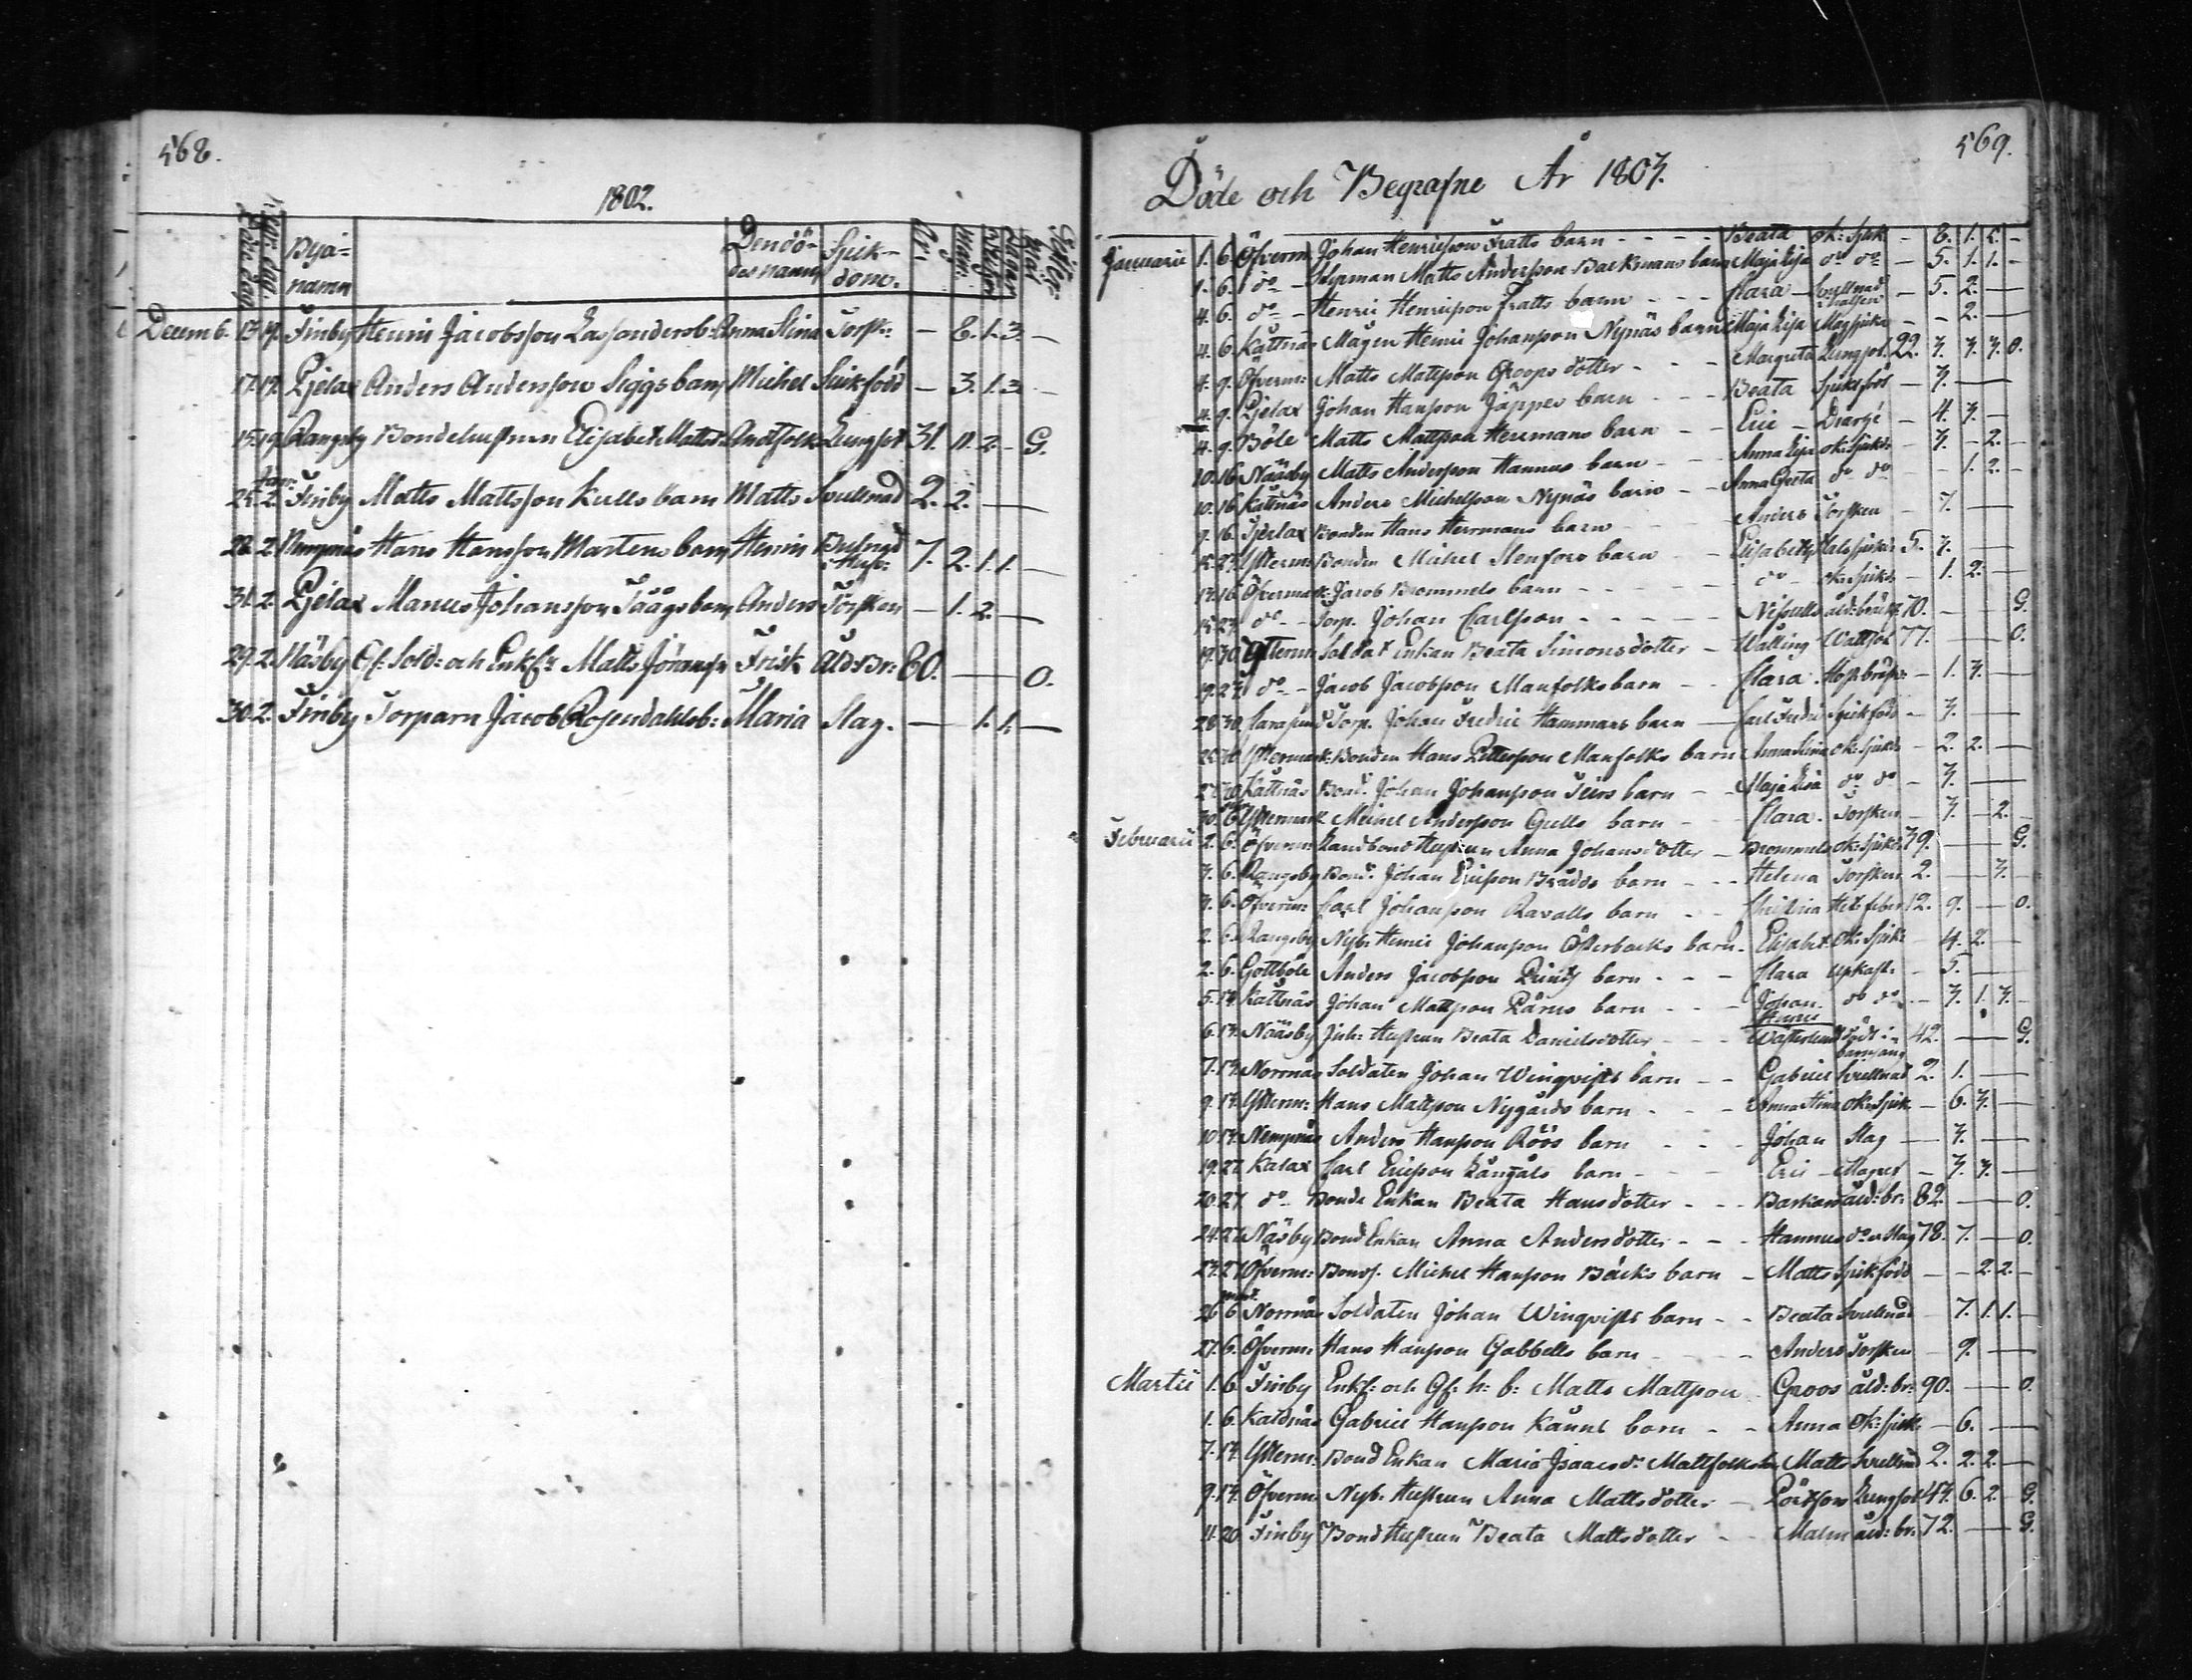 568.
1802.
Byanamn
Den dödes namn
Sjukdom.
Decemb. 13. 19. Finby Henric Jacobsson Lassanders b: Anna Stina Torsk: — 8. 1. 3. —
17. 19. Pjelax Anders Andersson Siggs barn Michel Sjukfödd — 3. 1. 3. —
15. 19. Rangsby Bondehustrun Elisabet Matts Lungsot 31. 11. 2. — G.
25. Janr: 2. Finby Matts Mattsson Kulls barn Matts Svullnad 2. 2. —
28. 2. Nempnäs Hans Hansson Martens barn Henric 7. 2. 1. 1. —
31. 2. Pjelax Johansson barn Anders Torsken — 1. 2. —
29. 2. Näsby Gf: Sold: och Enkf: Matts Jöranss: Frisk Åld: Br: 80. — O.
30. 2. Finby Torparn Jacob Rosendahls b: Maria Slag. — 1. 1. —
569.
Döde och Begrafne År 1803.
Januarii 1. 6. Öfverm: Johan Henricsson Fratts barn - - - Beata ok: sjuk: — 8. 1. 2. —
1. 6. do — Matts Andersson Backmans barn Maja Lisa do do — 5. 1. 1. —
4. 6. do — Henric Henricsson Fratts barn - - - Clara Svullnad i halsen — 5. 2. —
4. 6. Kattnäs Mågen Henric Johansson Nynäs barn Maja Lisa Magsjuka — — 2. —
4. 9. Öfverm: Matts Mattsson Groops dotter - - - Margreta Lungsot. 22. 3. 3. 3. O.
4. 9. Pjelax Johan Hansson Jäppes barn - - - Beata Sjukfödd — 3. —
4. 9. Böle Matts Mattsson Hermans barn - - Eric — Diargé — 4. 3. —
10. 16. Näsby Matts Andersson Hannus barn - - Anna Lisa ok: sjukd: — 3. — 2. —
10. 16. Kattnäs Anders Michelsson Nynäs barn - - Anna Greta do do — — 1. 2. —
9. 16. Tjerlax Bonden Hans Herrmans barn Anders Torsken — 7. —
15. 23. Ytterm: Bonden Michel Stenfors barn - - Elisabeth Halssjukd: 5. 3. —
13. 16. Öfvermark: Jacob Brommels barn - - - do — ok: sjukd: — 1. 2. —
15. 23. do — Torp. Johan Carlsson - - - åld: bräckl: 70. — G.
19. 30. Ytterm: Soldat Enkan Beata Simonsdotter — Walling Wattsot 77. — O.
19. 23. do — Jacob Jacobsson Manfolks barn - - Clara — 1. 3. —
28. 30. Torp. Johan Fredric Hammars barn — Carl Fredric Sjukfödd — 3. —
25. 30. Yttermark: Bonden Hans Pettersson Manfolks barn Anna Stina ok: sjukd: — 2. 2. —
27. 30. Kattnäs Bond: Johan Johansson barn - - Maja Lisa do do — 3. —
30. 6. Yttermark Michel Andersson Gulls barn - - Clara. Torsken — 3. — 2. —
Februarii 2. 6. Öfverm: Landbond Hustrun Anna Johansdotter — Brommels ok: sjukd: 39. — G.
3. 6. Rangsby Bond: Johan Ericsson Brådds barn - - - Helena Torsken 2. — 3. —
3. 6. Öfverm: Carl Johansson Ravalls barn - - Christina Het: feber 12. 9. — O.
2. 6. Rangsby Nyb: Henric Johansson Österbacks barn. Elisabet ok: sjuk: — 4. 2. —
2. 6. Gottböle Anders Jacobsson Printz barn - - - Clara upkast: — 5. —
5. 13. Kattnäs Johan Mattsson Pärus barn - - - Johan do do — 3. 1. 3. —
6. 13. Näsby Inh: Hustrun Beata Danielsdotter - - - Wästerlund död i barnsäng 42. — G.
7. 13. Norrnäs Soldaten Johan Winqvists barn - - Gabriel Svullnad 2. 1. —
9. 13. Ytterm: Hans Mattsson Nygårds barn - - - Anna Stina ok: sjuk: — 6. 3. —
10. 13. Nempnäs Anders Hansson Röös barn - - Johan Slag — 3. —
19. 27. Kalax Carl Ericsson Långåls barn - - - Eric — Magref — 3. 3. —
20. 27. do. Bonde Enkan Beata Hansdotter - - - Barkars åld: br: 82. — O.
24. 27. Näsby Bond Enkan Anna Andersdotter - - - Hannus do o Slag 78. 7. — O.
23. 27. Öfverm: Bonds. Michel Hansson Bäcks barn — Matts Sjukfödd — — 2. 2. —
26. mart. 6. Norrnäs Soldaten Johan Winqvists barn - - Beata Svullnad — 7. 1. 1. —
27. 6. Öfverm: Hans Hansson Gabbells barn - - - Anders Torsken — 9. —
Martii 1. 6. Finby Enkf: och Gf: h: b: Matts Mattsson Groos åld: br: 90. — O.
1. 6. Kaldnäs Gabriel Hansson Känns barn - - Anna ok: sjuk: — 6. —
7. 13. Ytterm: Bond Enkan Maria Isaacs d: Mattfolks barn Matts Svullnad 2. 2. 2. —
9. 13. Öfverm: Nyb: Hustrun Anna Mattsdotter — Pörtfors Lungsot 43. 6. 2. — G.
11. 20. Finby Bond Hustrun Beata Mattsdotter - - Malm åld: br: 72. — G.